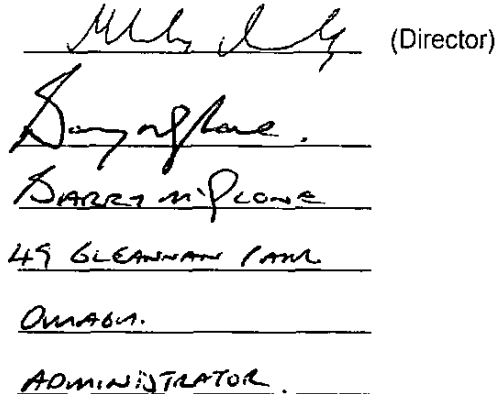 (Director)
Barry McGlone.
BARRY McGLONE
49 GLEANNAN PARK
OMAGH.
ADMINISTRATOR.